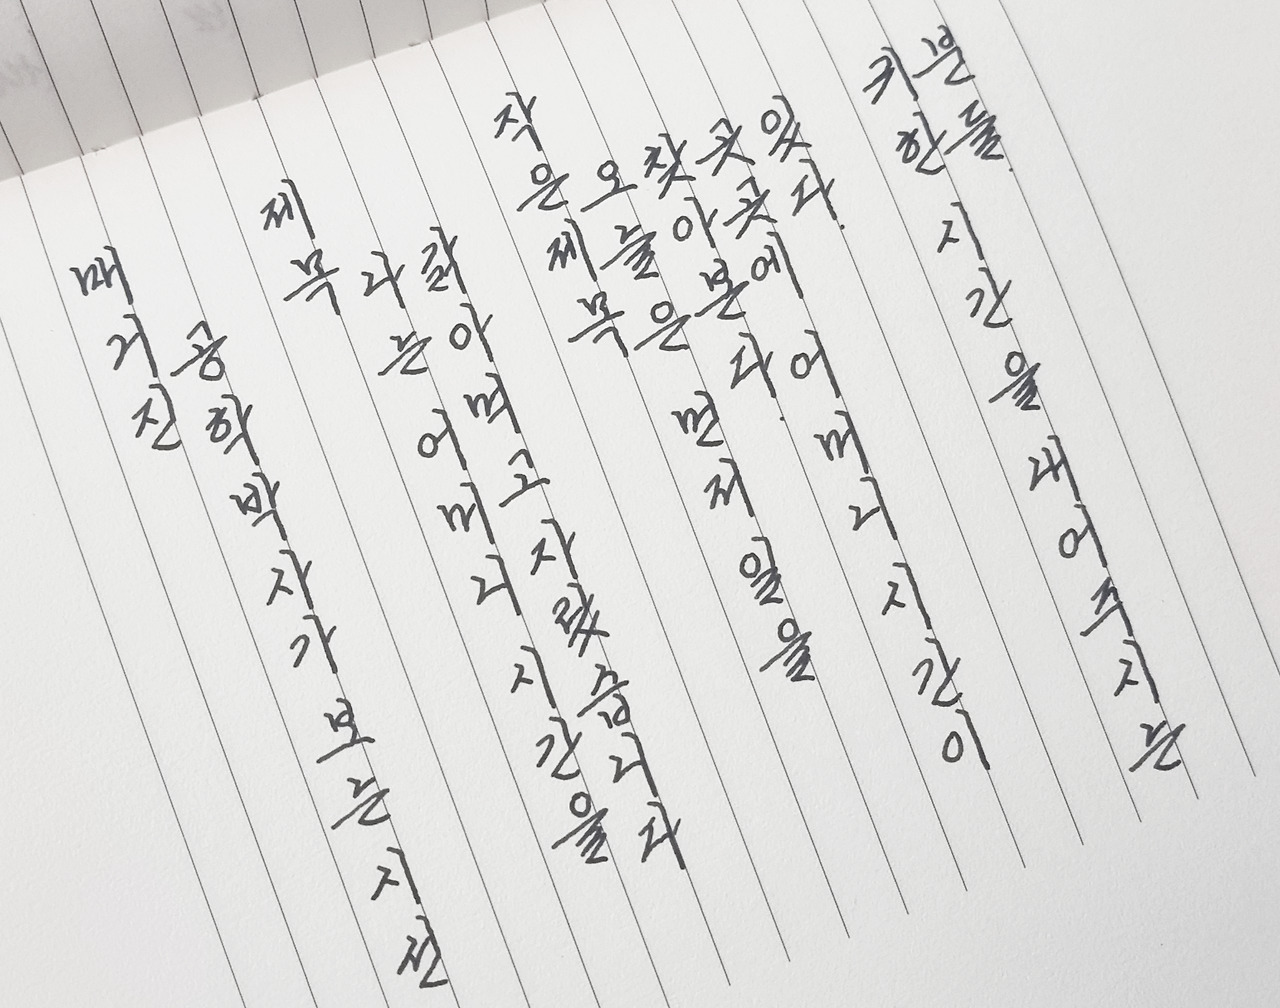 매거진
공학박사가 보는 시선
제목
나는 어머니 시간을
갉아먹고 자랐습니다
작은 제목
오늘은 먼저 일을
찾아본다.
곳곳에 어머니 시간이
있다.
귀한 시간을 내어주시는
분들.